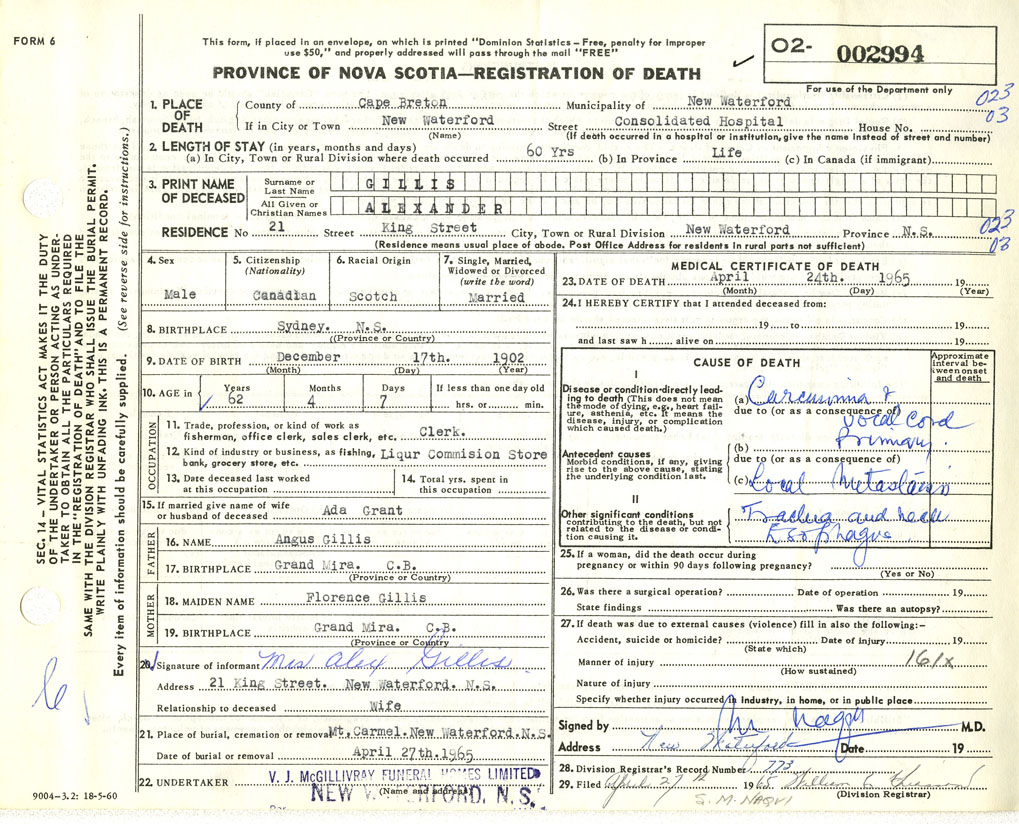 FORM 6
This form, if placed in an envelope, on which is printed "Dominion Statistics – Free, penalty for improper
use $50," and properly addressed will pass through the mail "FREE"
PROVINCE OF NOVA SCOTIA—REGISTRATION OF DEATH
O2- 002994
For use of the Department only
023
03
1. PLACE OF DEATH
County of Cape Breton Municipality of New Waterford
If in City or Town New Waterford Street Consolidated Hospital House No.
(Name) (If death occurred in a hospital or institution, give the name instead of street and number)
2. LENGTH OF STAY (in years, months and days)
(a) In City, Town or Rural Division where death occurred 60 Yrs (b) In Province Life (c) In Canada (if immigrant)
3. PRINT NAME OF DECEASED
Surname or Last Name GILLIS
All Given or Christian Names ALEXANDER
RESIDENCE No 21 Street King Street City, Town or Rural Division New Waterford Province N.S.
023
03
(Residence means usual place of abode. Post Office Address for residents in rural parts not sufficient)
4. Sex
Male
5. Citizenship
(Nationality)
Canadian
6. Racial Origin
Scotch
7. Single, Married,
Widowed or Divorced
(write the word)
Married
8. BIRTHPLACE Sydney. N.S.
(Province or Country)
9. DATE OF BIRTH December 17th. 1902
(Month) (Day) (Year)
10. AGE in
Years Months Days If less than one day old
62 4 7 hrs. or min.
OCCUPATION
11. Trade, profession, or kind of work as
fisherman, office clerk, sales clerk, etc. Clerk.
12. Kind of industry or business, as fishing, Liqur Commision Store
bank, grocery store, etc.
13. Date deceased last worked
at this occupation
14. Total yrs. spent in
this occupation
15. If married give name of wife
or husband of deceased Ada Grant
FATHER
16. NAME Angus Gillis
17. BIRTHPLACE Grand Mira. C.B.
(Province or Country)
MOTHER
18. MAIDEN NAME Florence Gillis
19. BIRTHPLACE Grand Mira. C.B.
(Province or Country
20. Signature of informant Mrs Alex Gillis
Address 21 King Street. New Waterford. N.S.
Relationship to deceased Wife
21. Place of burial, cremation or removal Mt.Carmel.New Waterford.N.S.
Date of burial or removal April 27th.1965
22. UNDERTAKER V. J. McGILLIVRAY FUNERAL HOMES LIMITED
(Name and address)
NEW WATERFORD, N. S.
MEDICAL CERTIFICATE OF DEATH
23. DATE OF DEATH April 24th. 1965 19
(Month) (Day) (Year)
24. I HEREBY CERTIFY that I attended deceased from:
19 to 19
and last saw h alive on 19
CAUSE OF DEATH
Approximate
interval be-
tween onset
and death
I
Disease or condition directly lead-
ing to death (This does not mean
the mode of dying, e.g., heart fail-
ure, asthenia, etc. It means the
disease, injury, or complication
which caused death.)
(a) Carcinoma of
due to (or as a consequence of)
Vocal Cord
Primary.
(b)
Antecedent causes
Morbid conditions, if any, giving
rise to the above cause, stating
the underlying condition last.
due to (or as a consequence of)
(c) Local Metastasis
II
Other significant conditions
contributing to the death, but not
related to the disease or condi-
tion causing it.
Trachea and neck
Esophagus
25. If a woman, did the death occur during
pregnancy or within 90 days following pregnancy?
(Yes or No)
26. Was there a surgical operation? Date of operation 19
State findings Was there an autopsy?
27. If death was due to external causes (violence) fill in also the following:–
Accident, suicide or homicide? Date of injury 19
(State which)
Manner of injury 161x
(How sustained)
Nature of injury
Specify whether injury occurred in industry, in home, or in public place
Signed by Naqvi M.D.
Address New Waterford Date 19
28. Division Registrar's Record Number 773
29. Filed April 27th 1965
(Division Registrar)
S. M. NAQVI
SEC. 14 – VITAL STATISTICS ACT MAKES IT THE DUTY
OF THE UNDERTAKER OR PERSON ACTING AS UNDER-
TAKER TO OBTAIN ALL THE PARTICULARS REQUIRED
IN THE "REGISTRATION OF DEATH" AND TO FILE THE
SAME WITH THE DIVISION REGISTRAR WHO SHALL ISSUE THE BURIAL PERMIT.
WRITE PLAINLY WITH UNFADING INK. THIS IS A PERMANENT RECORD.
Every item of information should be carefully supplied. (See reverse side for instructions.)
9004-3.2: 18-5-60